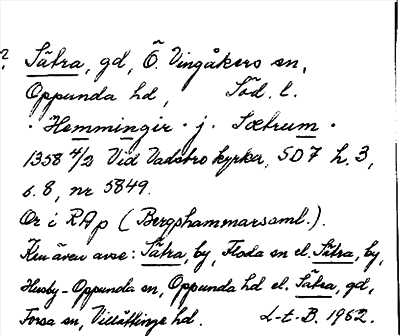 Sätra, gd, Ö. Vingåkers sn,
Oppunda hd, Söd. l.
· Hemmingir · j · Sætrum ·
1358 4/2 Vid Vadstro kyrka, SD 7 h. 3,
s. 8, nr 5849.
Or i RAp (Bergshammarsaml.).
Kan även avse: Sätra, by, Floda sn el. Sätra, by,
Husby-Oppunda sn, Oppunda hd el. Sätra, gd,
Forsa sn, Villåttinge hd. L-E.B. 1962.